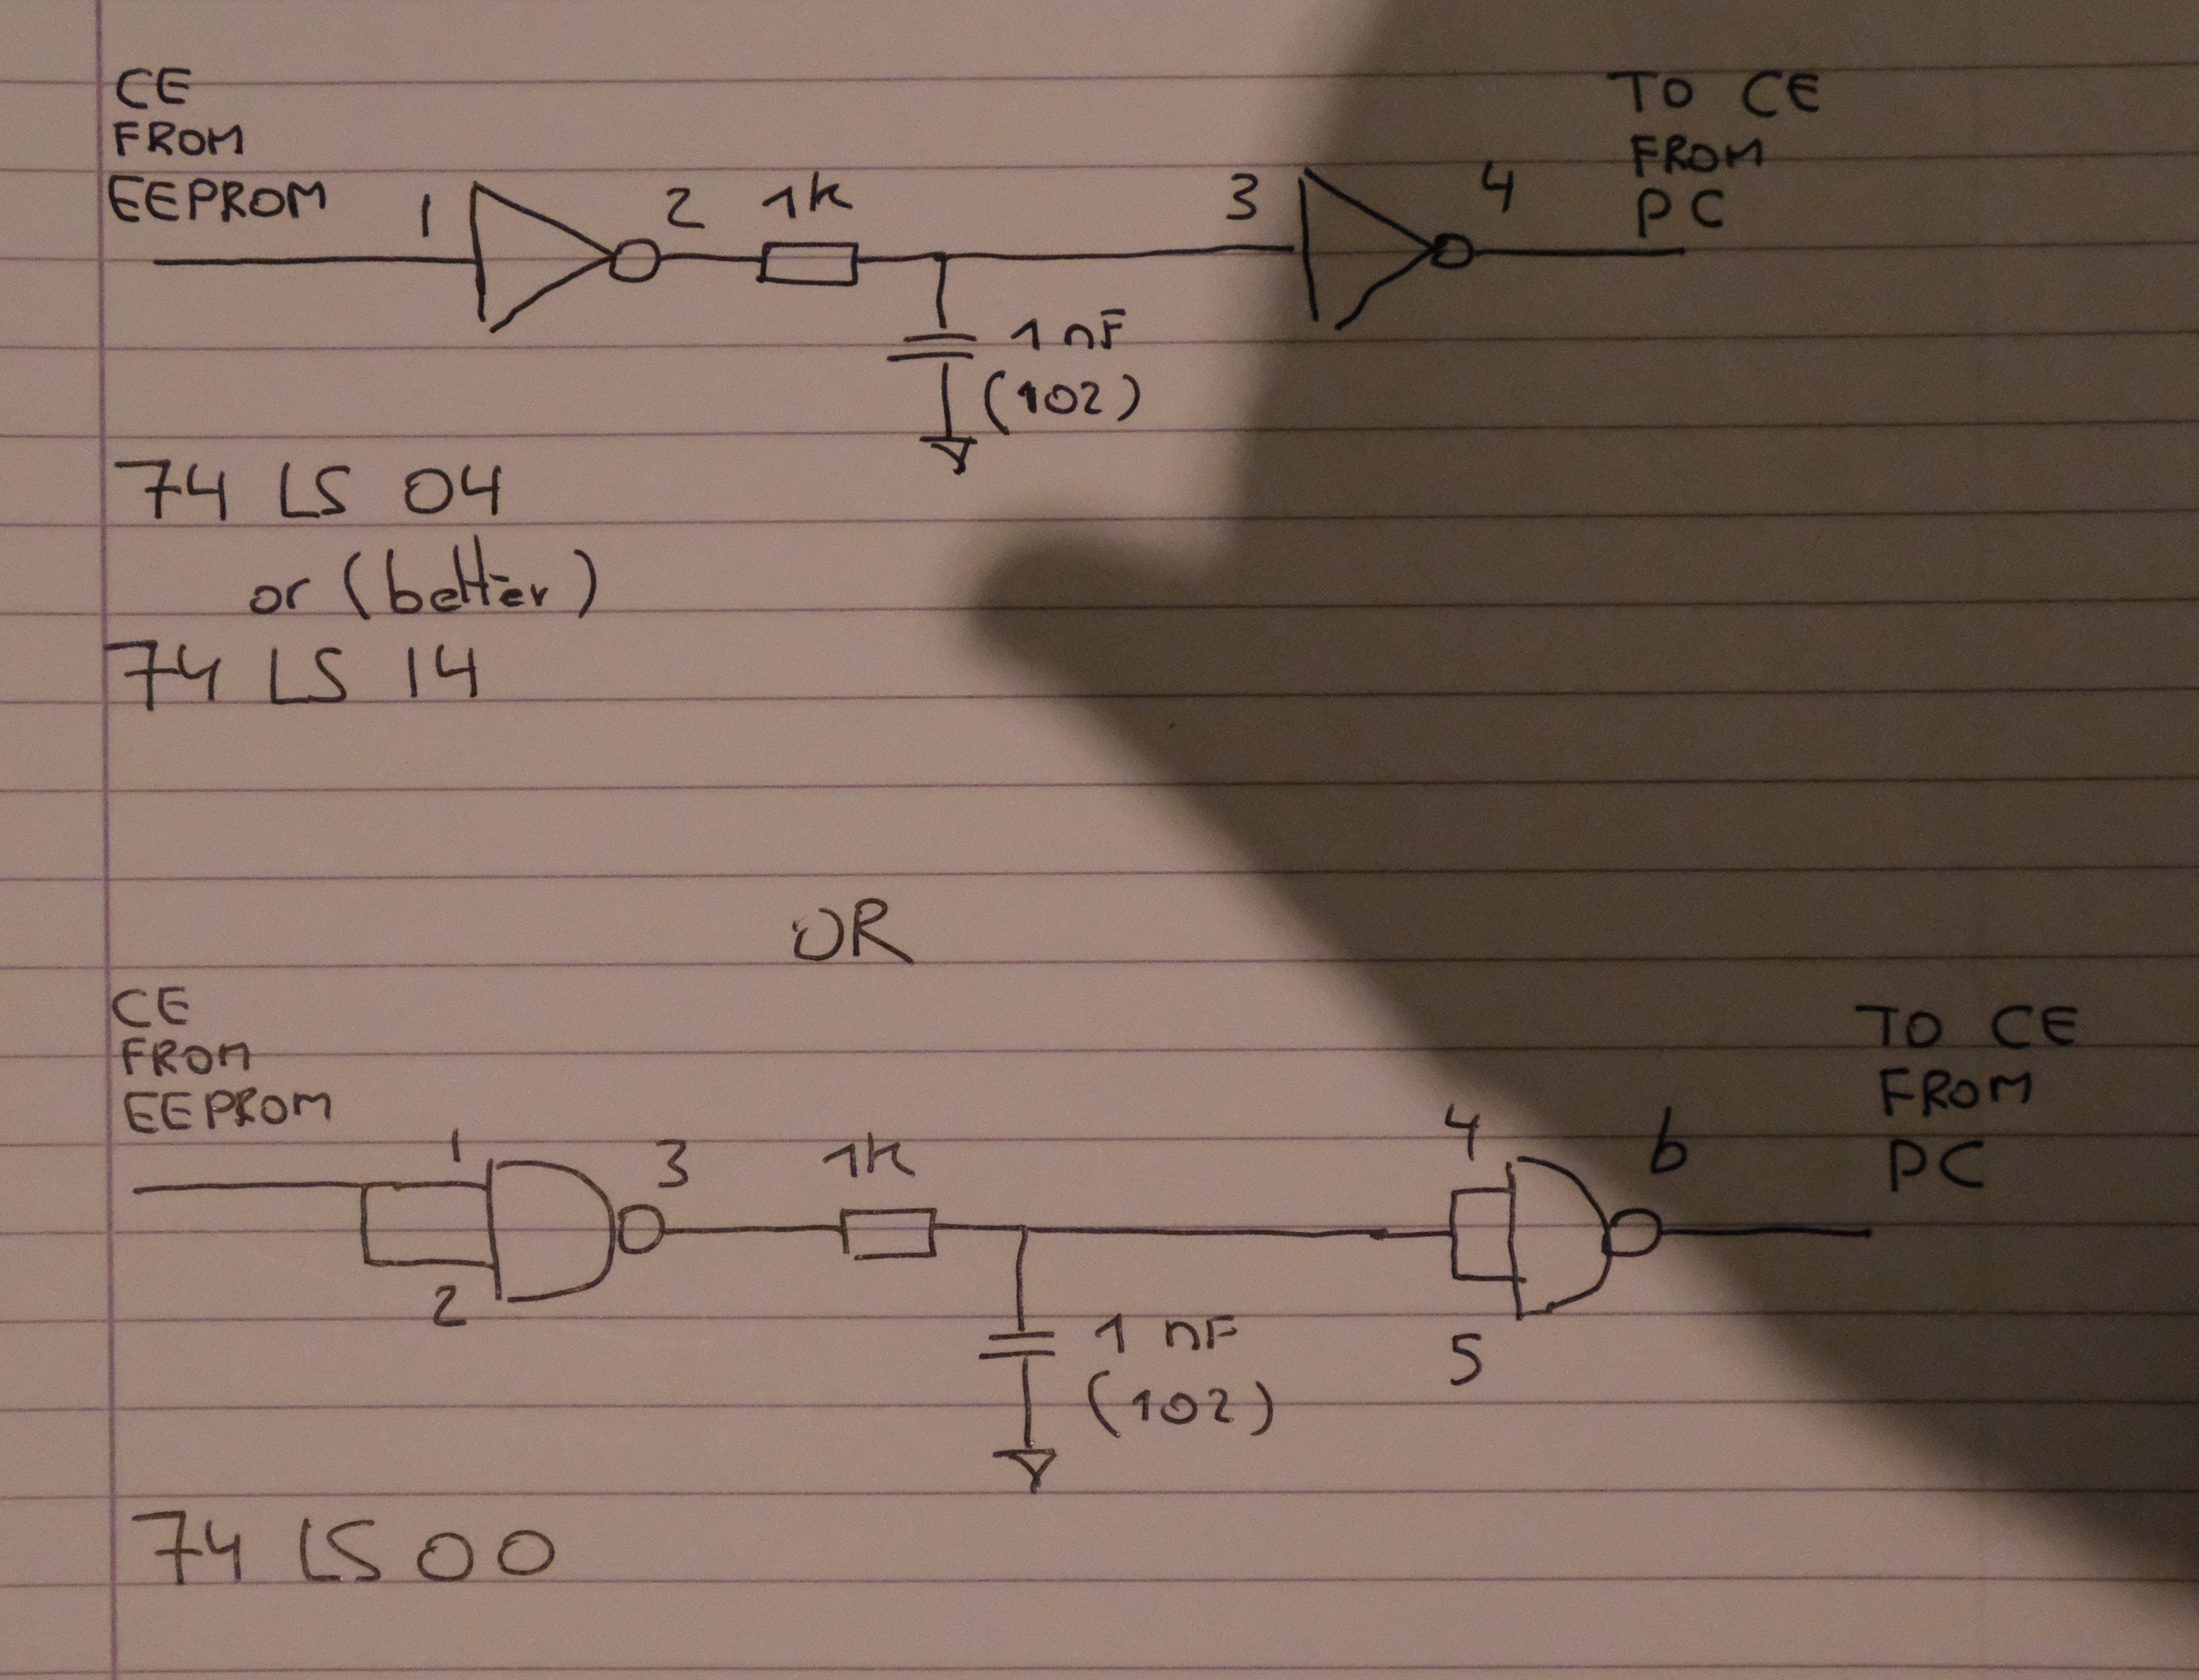 CE
FROM
EEPROM
1
2
1k
3
4
TO CE
FROM
PC
1 nF
(102)
74 LS 04
or (better)
74 LS 14
OR
CE
FROM
EEPROM
1
2
3
1k
4
5
6
TO CE
FROM
PC
1 nF
(102)
74 LS 00